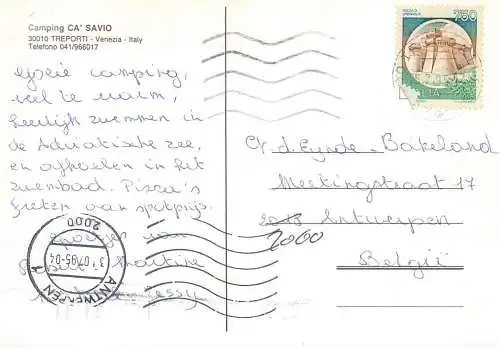 Camping CA' SAVIO
30010 TREPORTI - Venezia - Italy
Telefono 041/966017
goeie camping,
veel te warm,
heerlijk zwemmen in
de Adriatische zee,
en afkoelen in het
zwembad. Pizza's
freten van spotprijs.
groetjes van
Martine
750
V. d. Eynde - Bakeland
Meetingstraat 17
2018 Antwerpen
2000
België
2000
31.07.95-04
ANTWERPEN